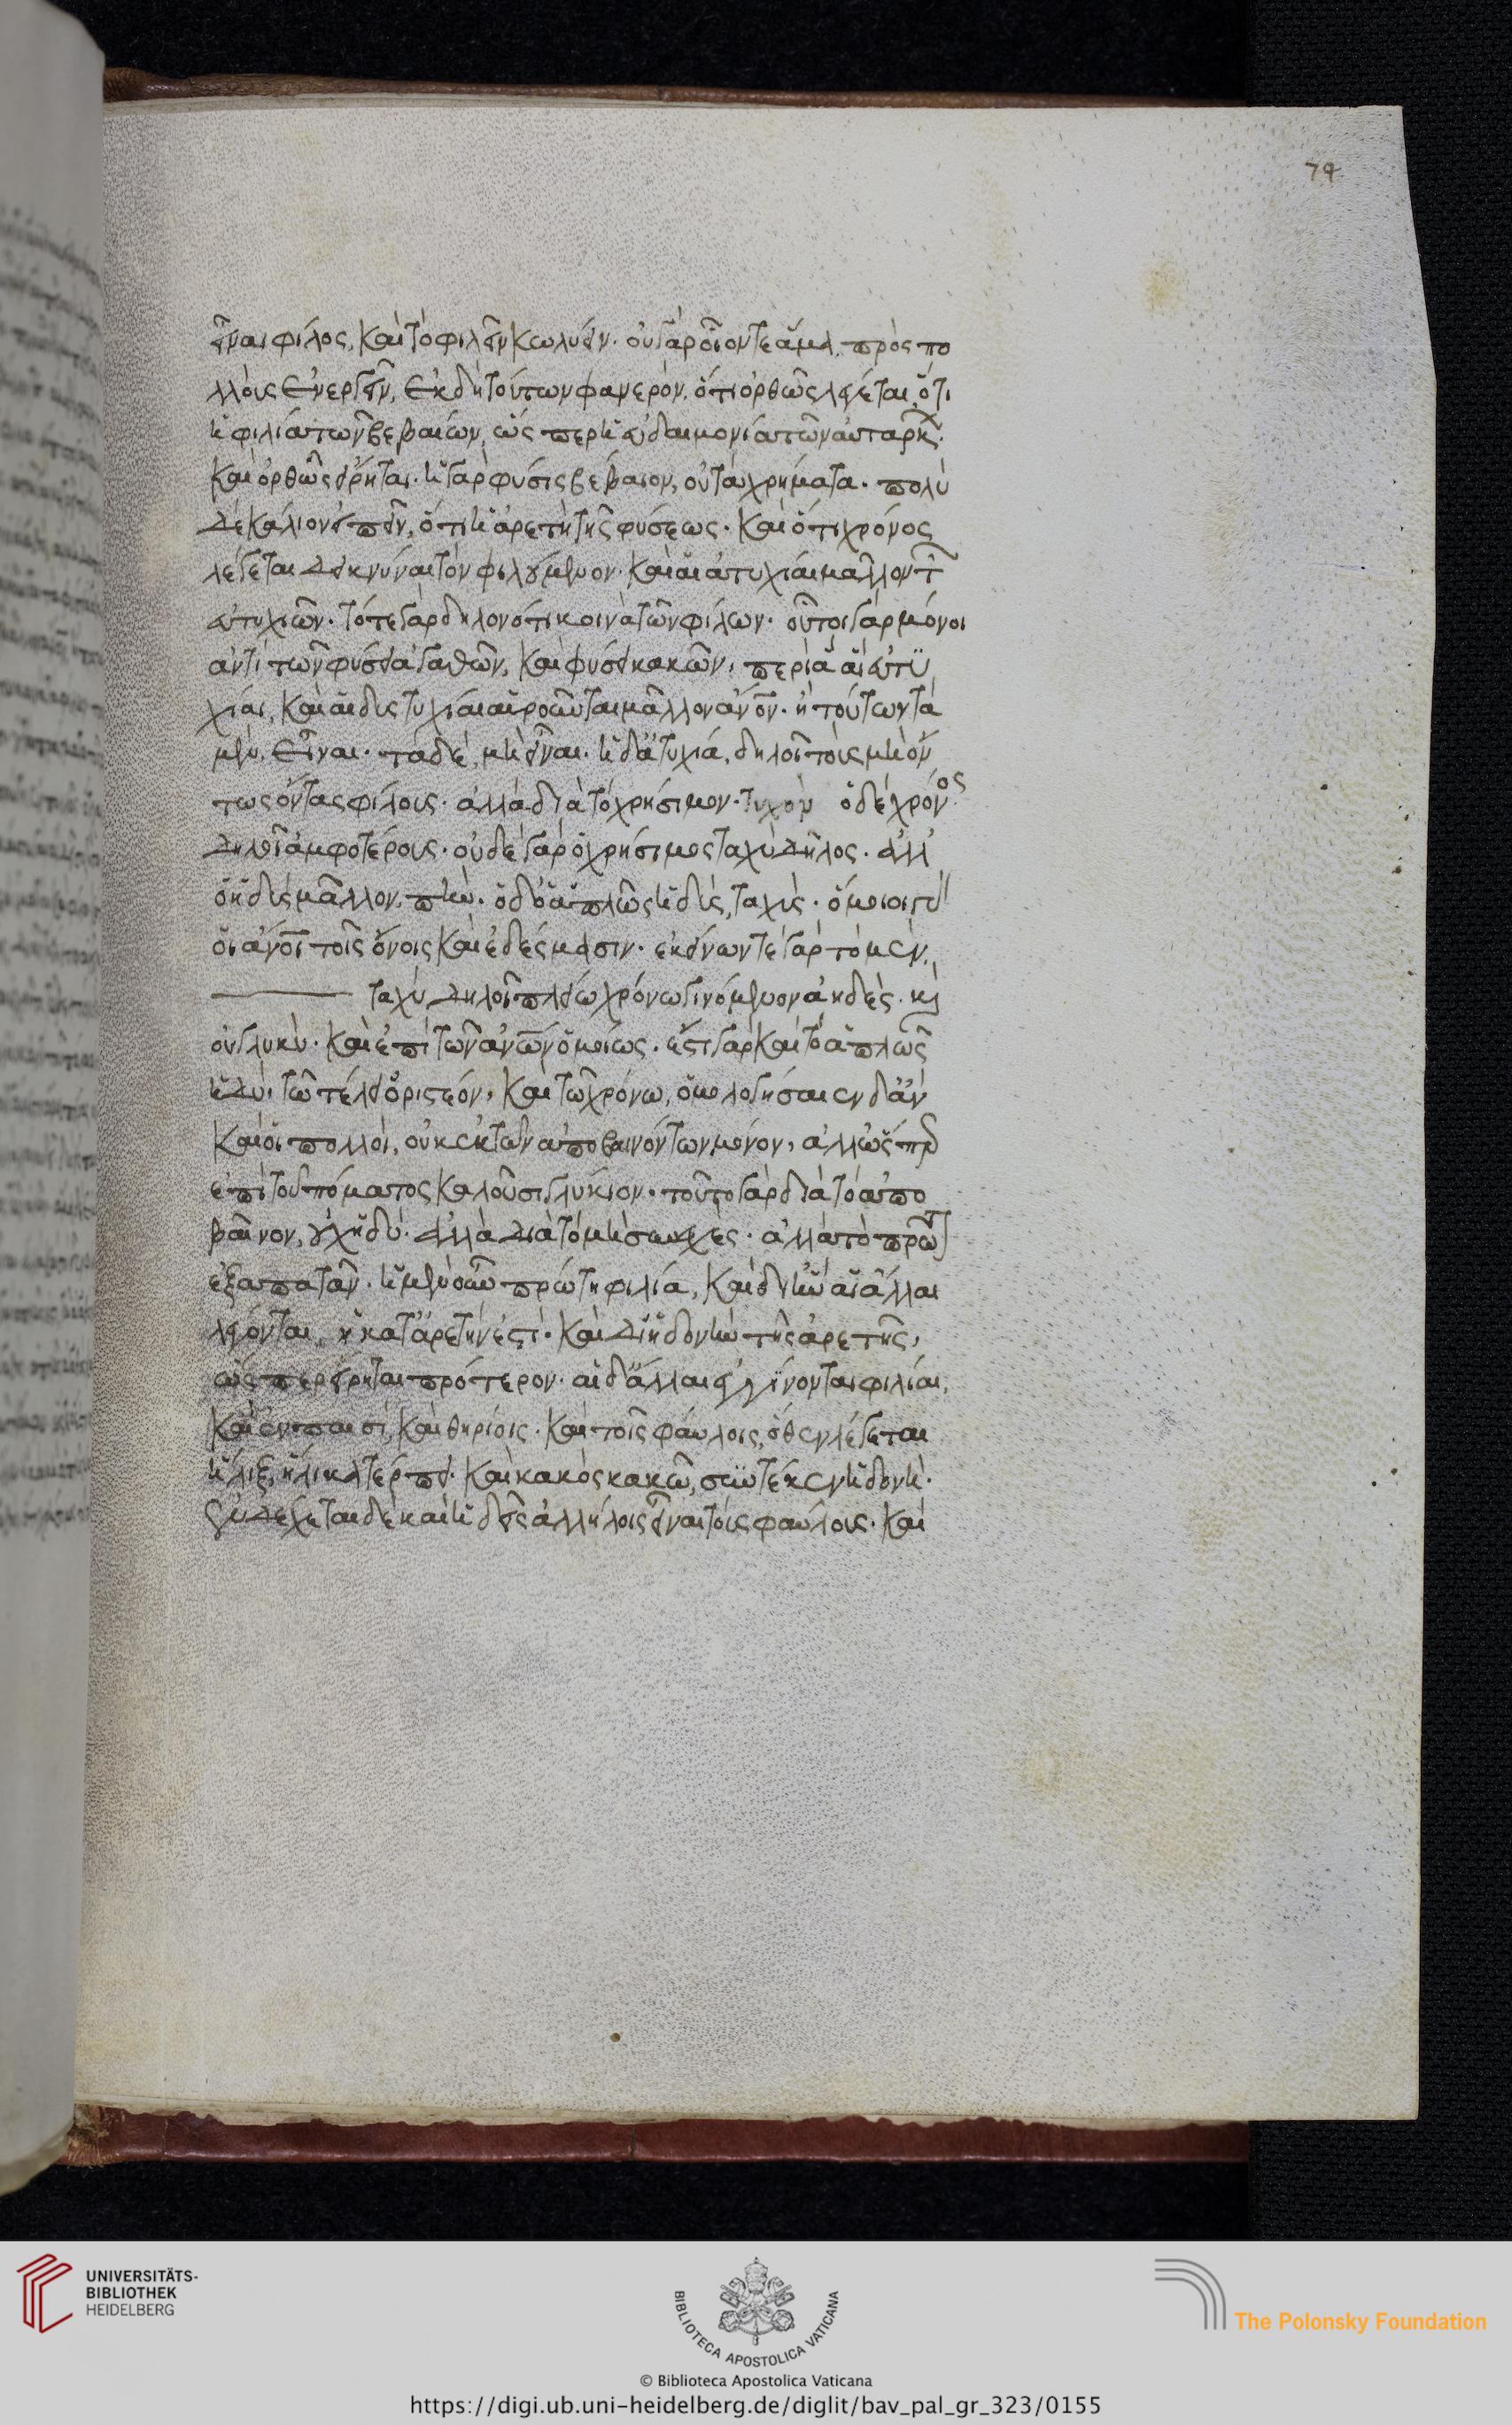 74
εἶναι φίλος, καὶ τὸ φιλεῖν κωλύειν. οὐ γὰρ οἷόν τε ἅμα πρὸς πο
λλοὺς ἐνεργεῖν, ἐκ δὴ τούτων φανερὸν, ὅτι ὀρθῶς λέγεται, ὅτι
ἡ φιλία τῶν βεβαίων, ὥς περ ἡ εὐδαιμονία τῶν αὐταρκ.
καὶ ὀρθῶς εἴρηται. ἡ γὰρ φύσις βέβαιον, οὐ τὰ χρήματα. πολὺ
δὲ κάλιον εἰπεῖν, ὅτι ἡ ἀρετὴ τῆς φύσεως. καὶ ὅτι χρόνος
λέγεται δεικνύναι τὸν φιλούμενον. καὶ αἱ ἀτυχίαι μᾶλλον τ
εὐτυχιῶν. τότε γὰρ δῆλον ὅτι κοινὰ τῶν φίλων. οὗτοι γὰρ μόνοι
ἀντὶ τῶν φύσει ἀγαθῶν, καὶ φύσει κακῶν, περὶ ἃ αἱ εὐτυ
χίαι, καὶ αἱ δυστυχίαι αἱροῦνται μᾶλλον ἄνον. ἢ τούτων τὰ
μὲν, εἶναι. τὰ δὲ, μὴ εἶναι. ἡ δ' ἀτυχία, δηλοῖ τοὺς μὴ ὄν
τως ὄντας φίλους. ἀλλὰ διὰ τὸ χρήσιμον. τυχὸν ὁ δὲ χρόνος.
δηλοῖ ἀμφοτέρους. οὐδὲ γὰρ ὁ χρήσιμος ταχὺ δῆλος. ἀλλ'
ὁ ἡδὺς μᾶλλον. πλὴν. ὁ δ' ἁπλῶς ἡδὺς, ταχύς. ὅμοιοι γὰρ
οἱ ἄνοι τοῖς οἴνοις καὶ ἐδέσμασιν. ἐκείνων τε γὰρ τὸ μὲν.
ταχὺ δηλοῖ πλείω χρόνω γινόμενον ἀηδὲς. καὶ
οὐ γλυκύ. καὶ ἐπὶ τῶν ἀνων ὁμοίως. ἔστι γὰρ καὶ τὸ ἁπλῶς
ἡδὺ, τῶ τέλει ὁριστέον, καὶ τῶ χρόνω, ὁμολογήσαιεν δ' ἂν
καὶ οἱ πολλοὶ, οὐκ ἐκ τῶν ἀποβαινόντων μόνον, ἀλλ' ὥσπερ
ἐπὶ τοῦ πόματος καλοῦσι γλύκιον. τοῦτο γὰρ διὰ τὸ ἀπο
βαῖνον, οὐχ ἡδύ. ἀλλὰ διὰ τὸ μὴ συνεχὲς. ἀλλὰ τὸ πρῶτ
ἐξαπατᾶν. ἡ μὲν οὖν πρώτη φιλία, καὶ δι' ἣν αἱ ἄλλαι
λέγονται, ἡ κατ' ἀρετήν ἐστι. καὶ δι' ἡδονὴν τῆς ἀρετῆς,
ὥσπερ εἴρηται πρότερον. αἱ δ' ἄλλαι ἐγγίνονται φιλίαι,
καὶ ἐν παισὶ, καὶ θηρίοις. καὶ τοῖς φαύλοις, ὅθεν λέγεται
ἧλιξ, ἥλικα τέρπει. καὶ κακὸς κακῶ, συντέτηκεν ἡδονῆ.
ἐνδέχεται δὲ καὶ ἡδεῖς ἀλλήλοις εἶναι τοὺς φαύλους. καὶ
UNIVERSITÄTS-
BIBLIOTHEK
HEIDELBERG
BIBLIOTECA APOSTOLICA VATICANA
The Polonsky Foundation
© Biblioteca Apostolica Vaticana
https://digi.ub.uni-heidelberg.de/diglit/bav_pal_gr_323/0155